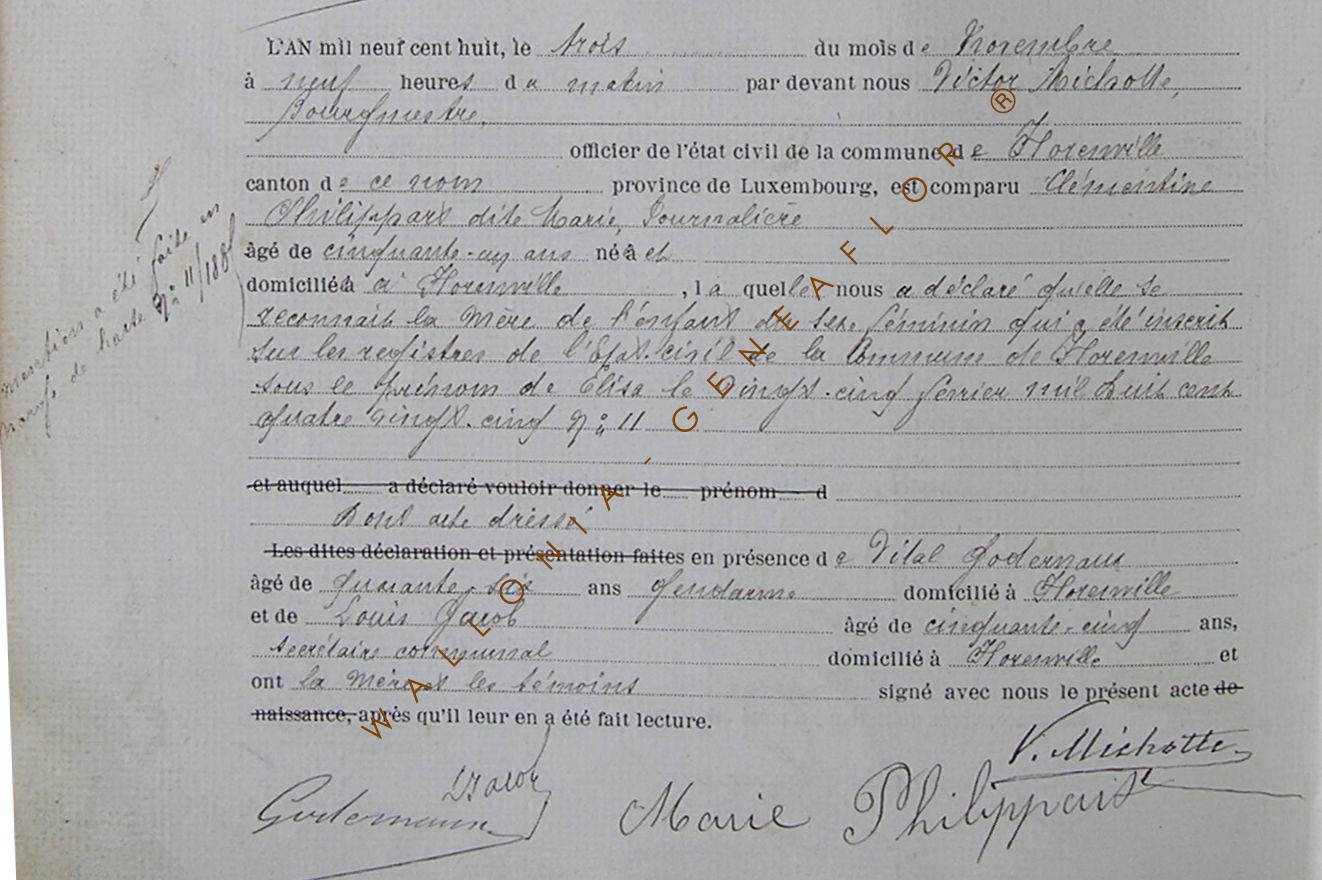 L'AN mil neuf cent huit, le trois du mois de Novembre
à neuf heures du matin par devant nous Victor Michotte,
Bourgmestre,
officier de l'état civil de la commune de Florenville
canton de ce nom province de Luxembourg, est comparu Clémentine
Philippart dite Marie, Journalière
âgé de cinquante-un ans né à et
domicilié à à Florenville, laquelle nous a déclaré qu'elle se
reconnait la mère de l'enfant du sexe féminin qui a été inscrit
sur les registres de l'Etat-civil de la Commune de Florenville
sous le prénom de Elisa le vingt-cinq février mil huit cent
quatre vingt-cinq No 11
et auquel a déclaré vouloir donner le prénom d
Dont acte dressé
Les dites déclaration et présentation faites en présence de Vital
âgé de quarante-six ans Gendarme domicilié à Florenville
et de Louis Jacob âgé de cinquante-cinq ans,
secrétaire communal domicilié à Florenville et
ont la Mère et les témoins signé avec nous le présent acte de
naissance, après qu'il leur en a été fait lecture.
V. Michotte
LJacob
Marie Philippart
mention a été faite en
marge de l'acte No 11/1885
WALLONIA-GENEAFLOR ®